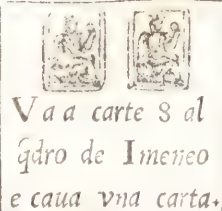 Va a carte 8 al
q̃dro de Imeneo
e caua vna carta.